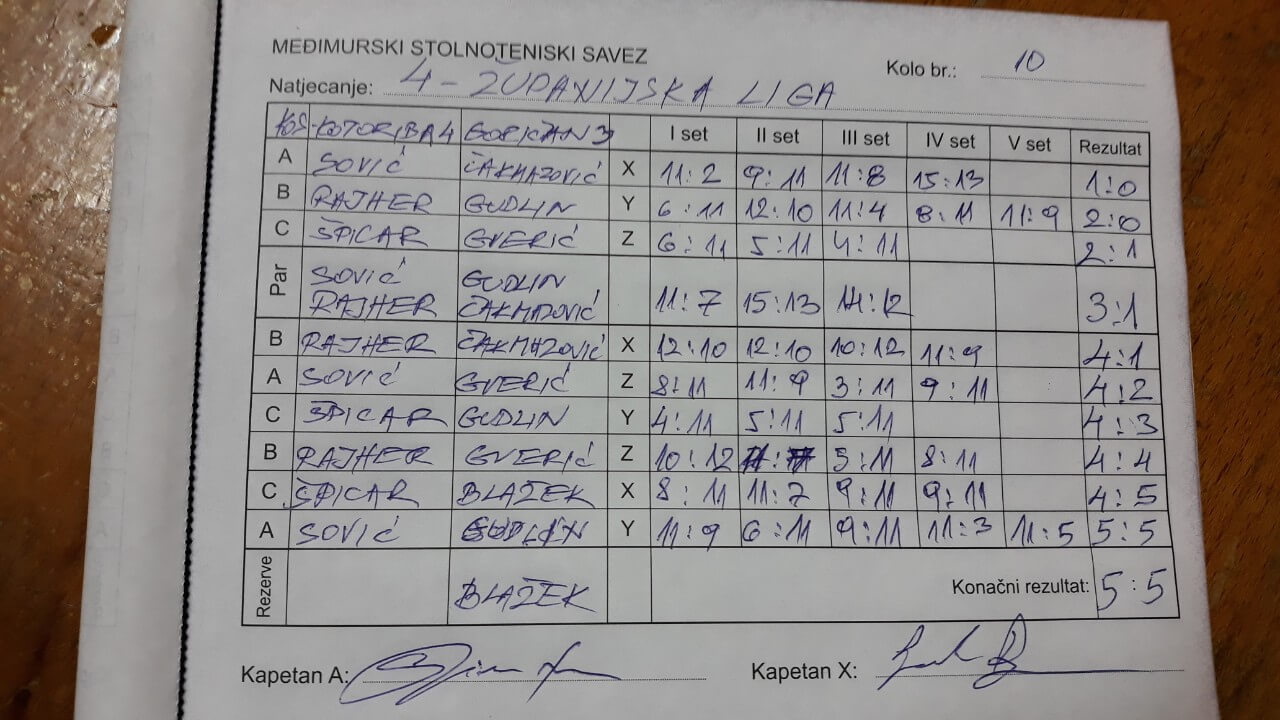 MEĐIMURSKI STOLNOTENISKI SAVEZ
Kolo br.: 10
Natjecanje: 4-ŽUPANIJSKA LIGA
KOTORIBA 4 GORIČAN 3 I set II set III set IV set V set Rezultat
A SOVIĆ ČAKMAZOVIĆ X 11:2 9:11 11:8 15:13 1:0
B RAJHER GUDLIN Y 6:11 12:10 11:4 8:11 11:9 2:0
C ŠPICAR GVERIĆ Z 6:11 5:11 4:11 2:1
Par SOVIĆ GUDLIN
RAJHER ČAKMAZOVIĆ 11:7 15:13 14:12 3:1
B RAJHER ČAKMAZOVIĆ X 12:10 12:10 10:12 11:9 4:1
A SOVIĆ GVERIĆ Z 8:11 11:9 3:11 9:11 4:2
C ŠPICAR GUDLIN Y 4:11 5:11 5:11 4:3
B RAJHER GVERIĆ Z 10:12 5:11 8:11 4:4
C ŠPICAR BLAŽEK X 8:11 11:7 9:11 9:11 4:5
A SOVIĆ GUDLIN Y 11:9 6:11 9:11 11:3 11:5 5:5
Rezerve BLAŽEK Konačni rezultat: 5:5
Kapetan A: Kapetan X: